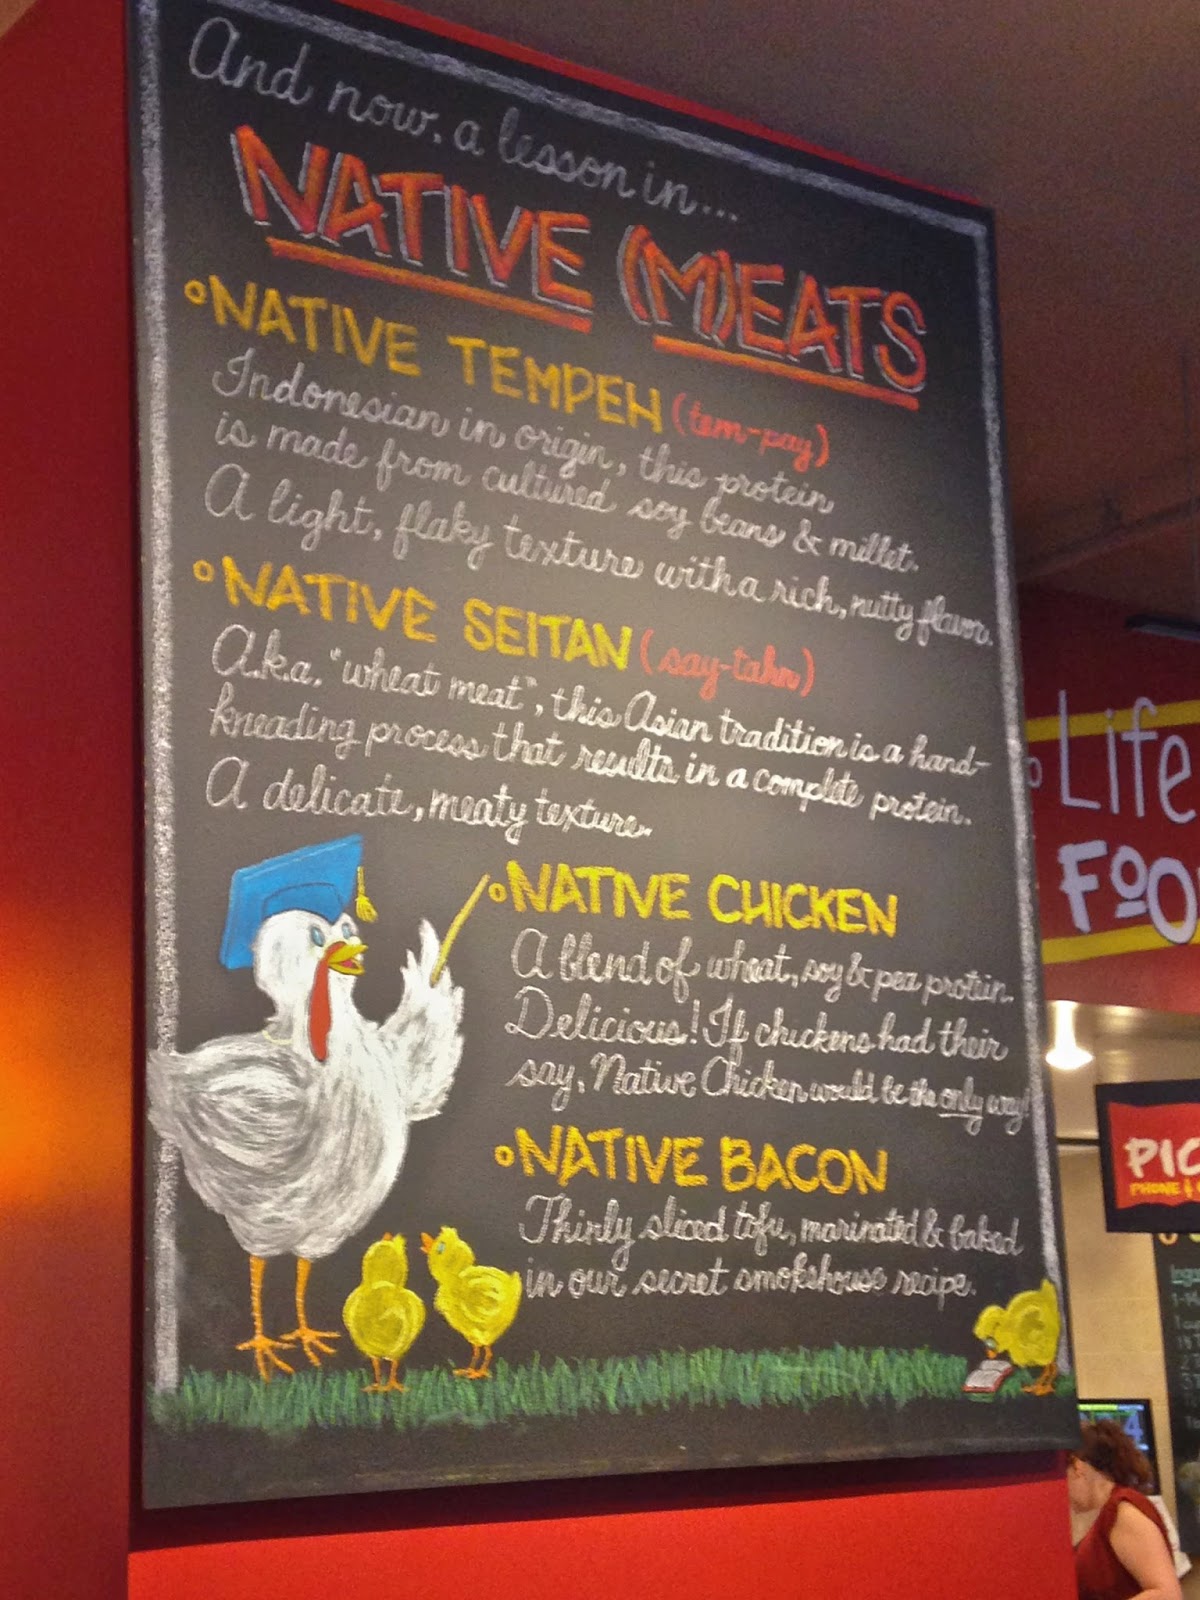 And now, a lesson in...
NATIVE (M)EATS
NATIVE TEMPEH (tem-pay)
Indonesian in origin, this protein
is made from cultured soy beans & millet.
A light, flaky texture with a rich, nutty flavor.
NATIVE SEITAN (say-tahn)
A.k.a. "wheat meat", this Asian tradition is a hand-
kneading process that results in a complete protein.
A delicate, meaty texture.
NATIVE CHICKEN
A blend of wheat, soy & pea protein.
Delicious! If chickens had their
say, Native Chicken would be the only way!
NATIVE BACON
Thinly sliced tofu, marinated & baked
in our secret smokehouse recipe.
Life
FOO
PIC
PHONE &